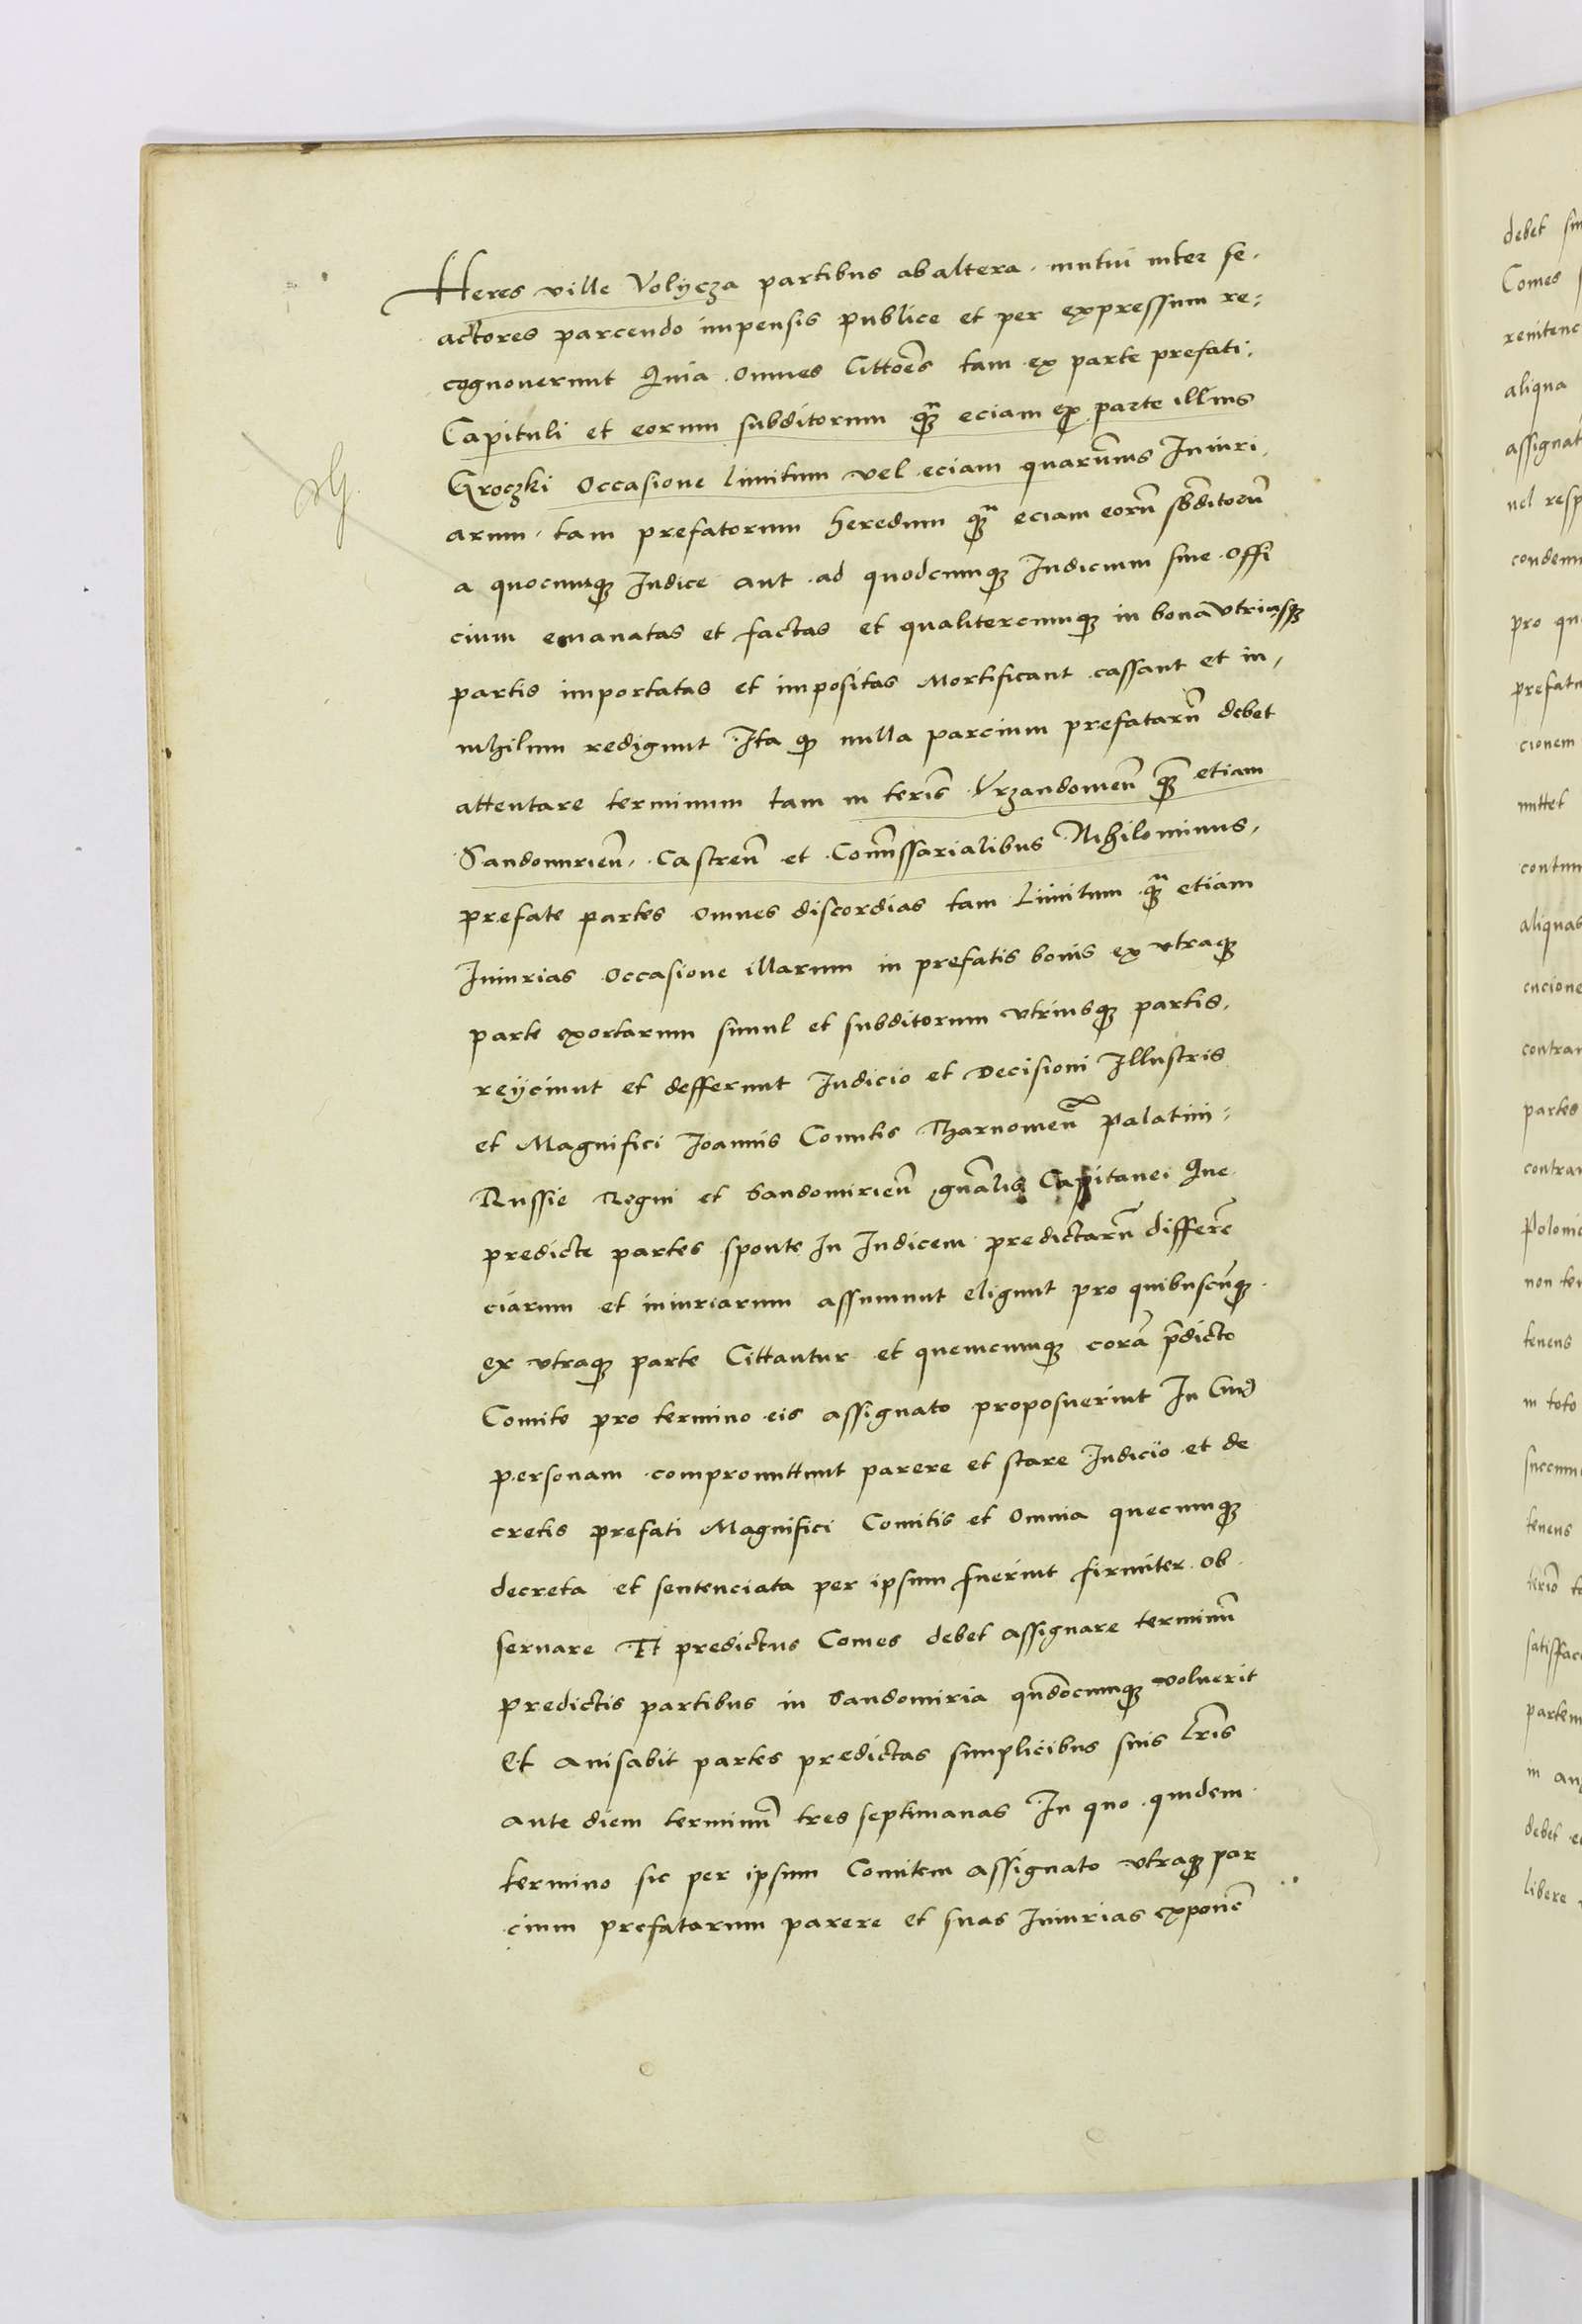 Heres ville Volycza partibus ab altera. mutui inter se.
actores parcendo impensis publice et per expressum re-
cognoverunt Quia omnes Cittões tam ex parte prefati.
Capituli et eorum subditorum q̃ eciam ex parte illius
Groczki Occasione limitum vel eciam quarũvis Iniuri
arum. tam prefatorum heredum q̃ eciam eorũ sb̃ditorũ
a quocumq₃ Iudice aut ad quodcumq₃ Iudicium sive offi
cium emanatas et factas et qualitercumq₃ in bona utriusq₃
partis importatas et impositas Mortificant cassant et in,
nihilum redigunt Ita q₃ nulla parcium prefatarũ debet
attentare terminum tam in teris̃ Vrzandomeñ q̃ etiam
Sandomirieñ. Castreñ et Com̃issarialibus Nihilominus,
prefate partes omnes discordias tam Limitum q̃ etiam
Iniurias Occasione illarum in prefatis bonis ex utraq₃
parte exortarum simul et subditorum utriusq₃ partis.
reijciunt et defferunt Iudicio et Decisioni Illustris
et Magnifici Ioannis Comitis Tharnomeñ Palatini
Russie Regni et Sandomirieñ gñalis Capitanei Que
predicte partes sponte In Iudicem predictarũ differẽ
ciarum et iniuriarum assumunt eligunt pro quibuscũq₃.
ex utraq₃ parte Cittantur et quemcumq₃ corã p̃dicto
Comite pro termino eis assignato proposuerint In
personam compromittunt parere et stare Iudicio et de
cretis prefati Magnifici Comitis et Omnia quecumq₃
decreta et sentenciata per ipsum fuerint firmiter ob
servare Et predictus Comes debet assignare terminũ
predictis partibus in Sandomiria qñdocumq₃ voluerit
Et avisabit partes predictas simplicibus suis Lr̃is
ante diem terminũ tres septimanas In quo quidem
termino sic per ipsum Comitem assignato utraq₃ par
cium prefatarum parere et suas Iniurias exponẽ
debet
Comes
renitenc
aliqua
assignat
vel resp
condem
pro qu
prefat
cionem
mittet
contum
aliquas
cucione
contra
partes
contra
Poloni
non te
tenens
in toto
succum
tenens
satisfac
partem
in
debet
libere